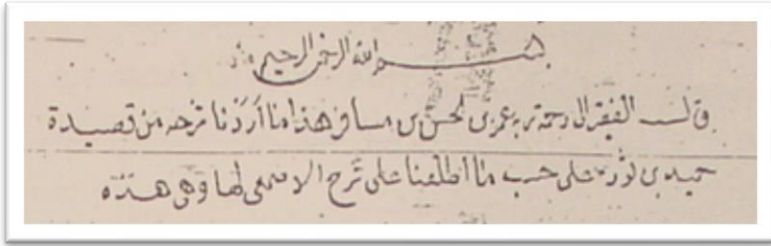 بسم الله الرحمن الرحيم
قال الفقير الى رحمة ربه عمر بن الحسن بن مسافر هذا ما أردنا شرحه من قصيدة
حميد بن ثور على حسب ما اطلعنا على شرح الاصمعي لها وهي هذه